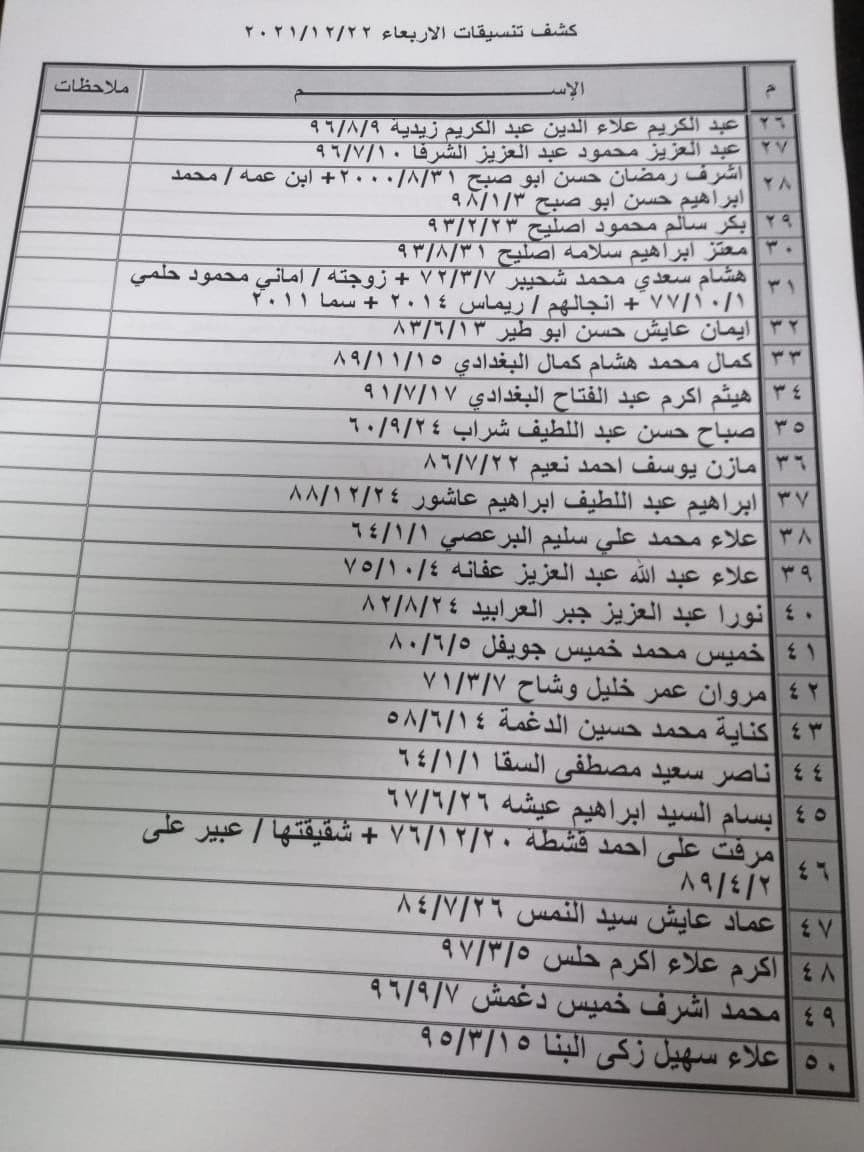 كشف تنسيقات الاربعاء ٢٠٢١/١٢/٢٢
م الإســـــــــم ملاحظات
٢٦ عبد الكريم علاء الدين عبد الكريم زيدية ٩٦/٨/٩
٢٧ عبد العزيز محمود عبد العزيز الشرفا ٩٦/٧/١٠
٢٨ اشرف رمضان حسن ابو صبح ٢٠٠٠/٨/٣١+ ابن عمه / محمد
ابراهيم حسن ابو صبح ٩٨/١/٣
٢٩ بكر سالم محمود اصليح ٩٣/٢/٢٣
٣٠ معتز ابراهيم سلامه اصليح ٩٣/٨/٣١
٣١ هشام سعدي محمد شحيبر ٧٢/٣/٧ + زوجته / اماني محمود حلمي
٧٧/١٠/١ + انجالهم / ريماس ٢٠١٤ + سما ٢٠١١
٣٢ ايمان عايش حسن ابو طير ٨٣/٦/١٣
٣٣ كمال محمد هشام كمال البغدادي ٨٩/١١/١٥
٣٤ هيثم اكرم عبد الفتاح البغدادي ٩١/٧/١٧
٣٥ صباح حسن عبد اللطيف شراب ٦٠/٩/٢٤
٣٦ مازن يوسف احمد نعيم ٨٦/٧/٢٢
٣٧ ابراهيم عبد اللطيف ابراهيم عاشور ٨٨/١٢/٢٤
٣٨ علاء محمد علي سليم البرعصي ٦٤/١/١
٣٩ علاء عبد الله عبد العزيز عفانه ٧٥/١٠/٤
٤٠ نورا عبد العزيز جبر العرابيد ٨٢/٨/٢٤
٤١ خميس محمد خميس جويفل ٨٠/٦/٥
٤٢ مروان عمر خليل وشاح ٧١/٣/٧
٤٣ كناية محمد حسين الدغمة ٥٨/٦/١٤
٤٤ ناصر سعيد مصطفى السقا ٦٤/١/١
٤٥ بسام السيد ابراهيم عيشه ٦٧/٦/٢٦
٤٦ مرفت على احمد قشطة ٧٦/١٢/٢٠ + شقيقتها / عبير على
٨٩/٤/٢
٤٧ عماد عايش سيد النمس ٨٤/٧/٢٦
٤٨ اكرم علاء اكرم حلس ٩٧/٣/٥
٤٩ محمد اشرف خميس دغمش ٩٦/٩/٧
٥٠ علاء سهيل زكى البنا ٩٥/٣/١٥